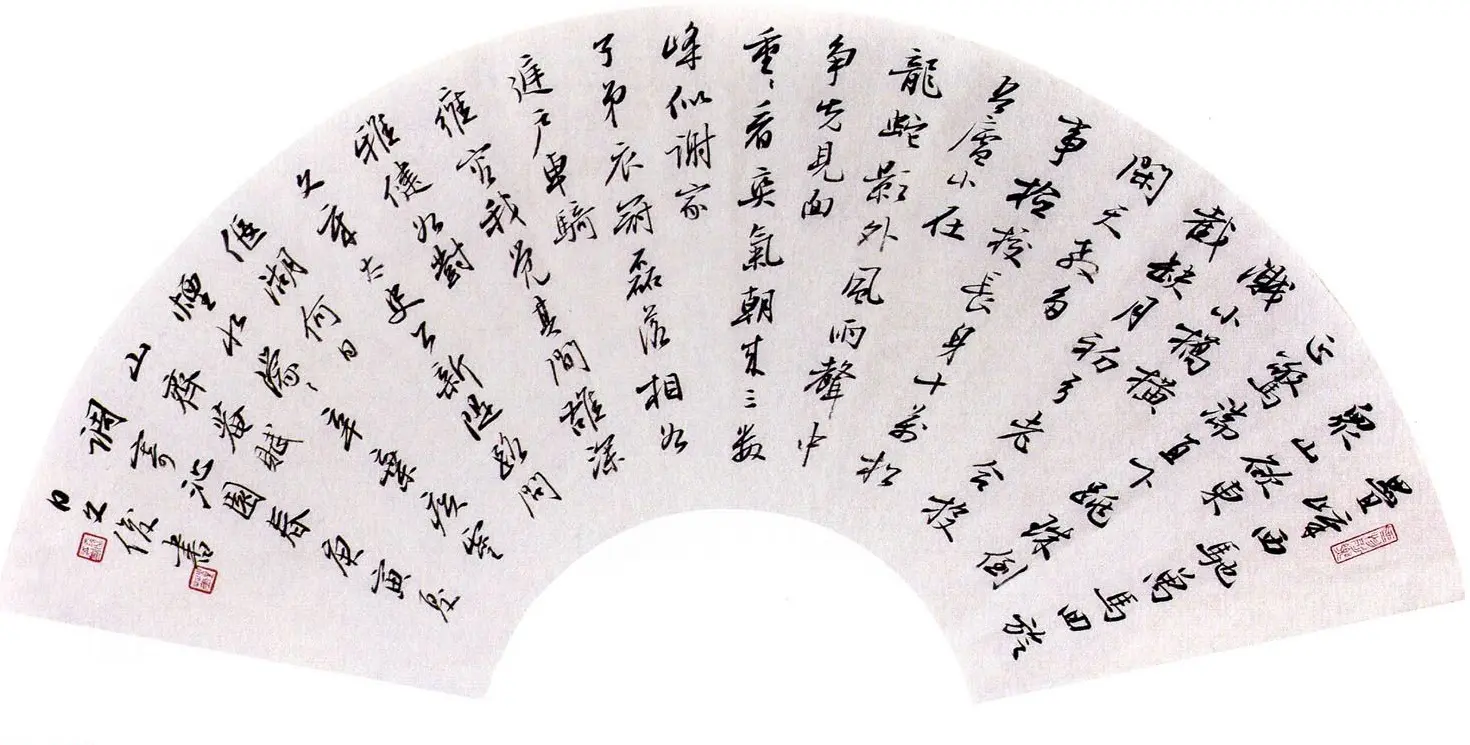 疊嶂西馳萬馬回旋
眾山欲東
正驚湍直下跳珠倒
濺小橋橫
截缺月初弓老合投
閑天教多
事檢校長身十萬松
吾廬小在
龍蛇影外風雨聲中
爭先見面
重〻看爽氣朝來三數
峰似謝家
子弟衣冠磊落相如
庭戶車騎
雍容我覺其間雄深
雅健如對
文章太史公新堤路問
偃湖何日
煙水濛〻辛棄疾靈
山齊菴賦
調寄沁園春庚寅夏
日文俊書